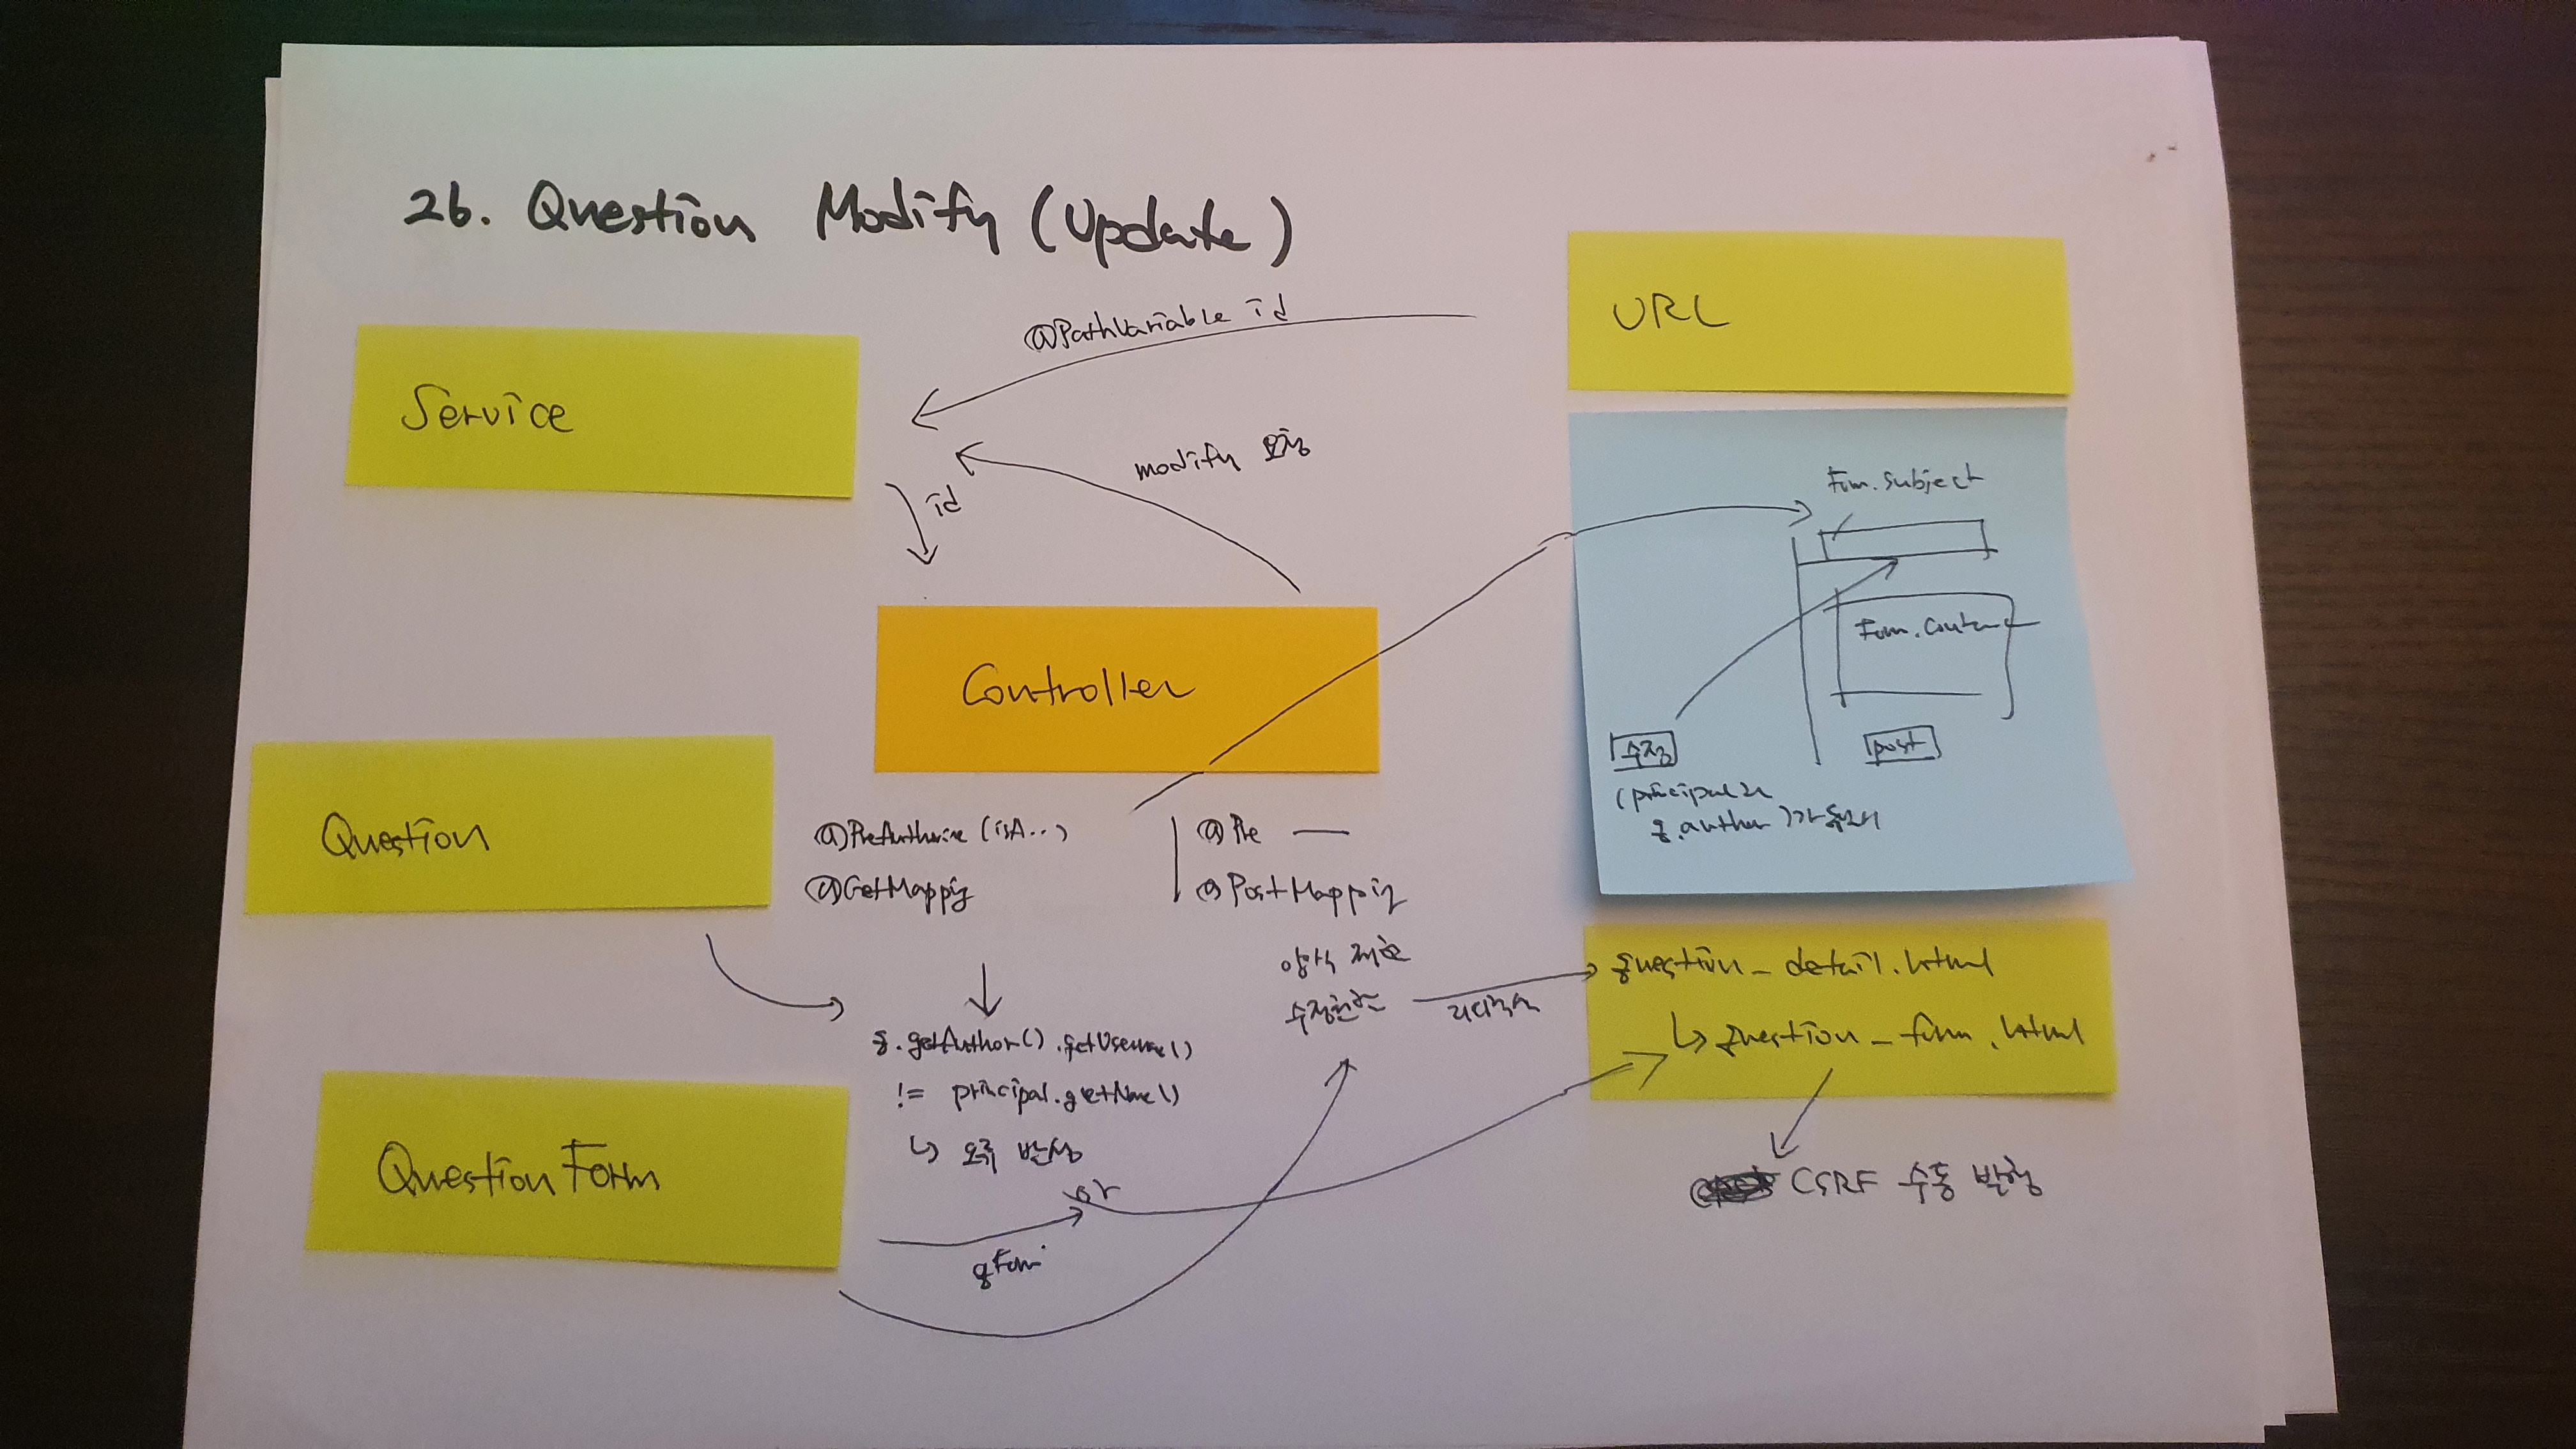 26. Question Modify (Update)
URL
@PathVariable id
Service
modify 요청
id
Form.subject
Controller
Form.content
수정
post
(principal과
q.author)가 동일시
Question
@PreAuthorize (isA...)
@GetMapping
@Pre —
@PostMapping
양식 제출
수정완료
리다이렉트
question_detail.html
↳ question_form.html
q.getAuthor().getUsername()
!= principal.getName()
↳ 오류 발생
or
QuestionForm
qForm
CSRF 수동 발행